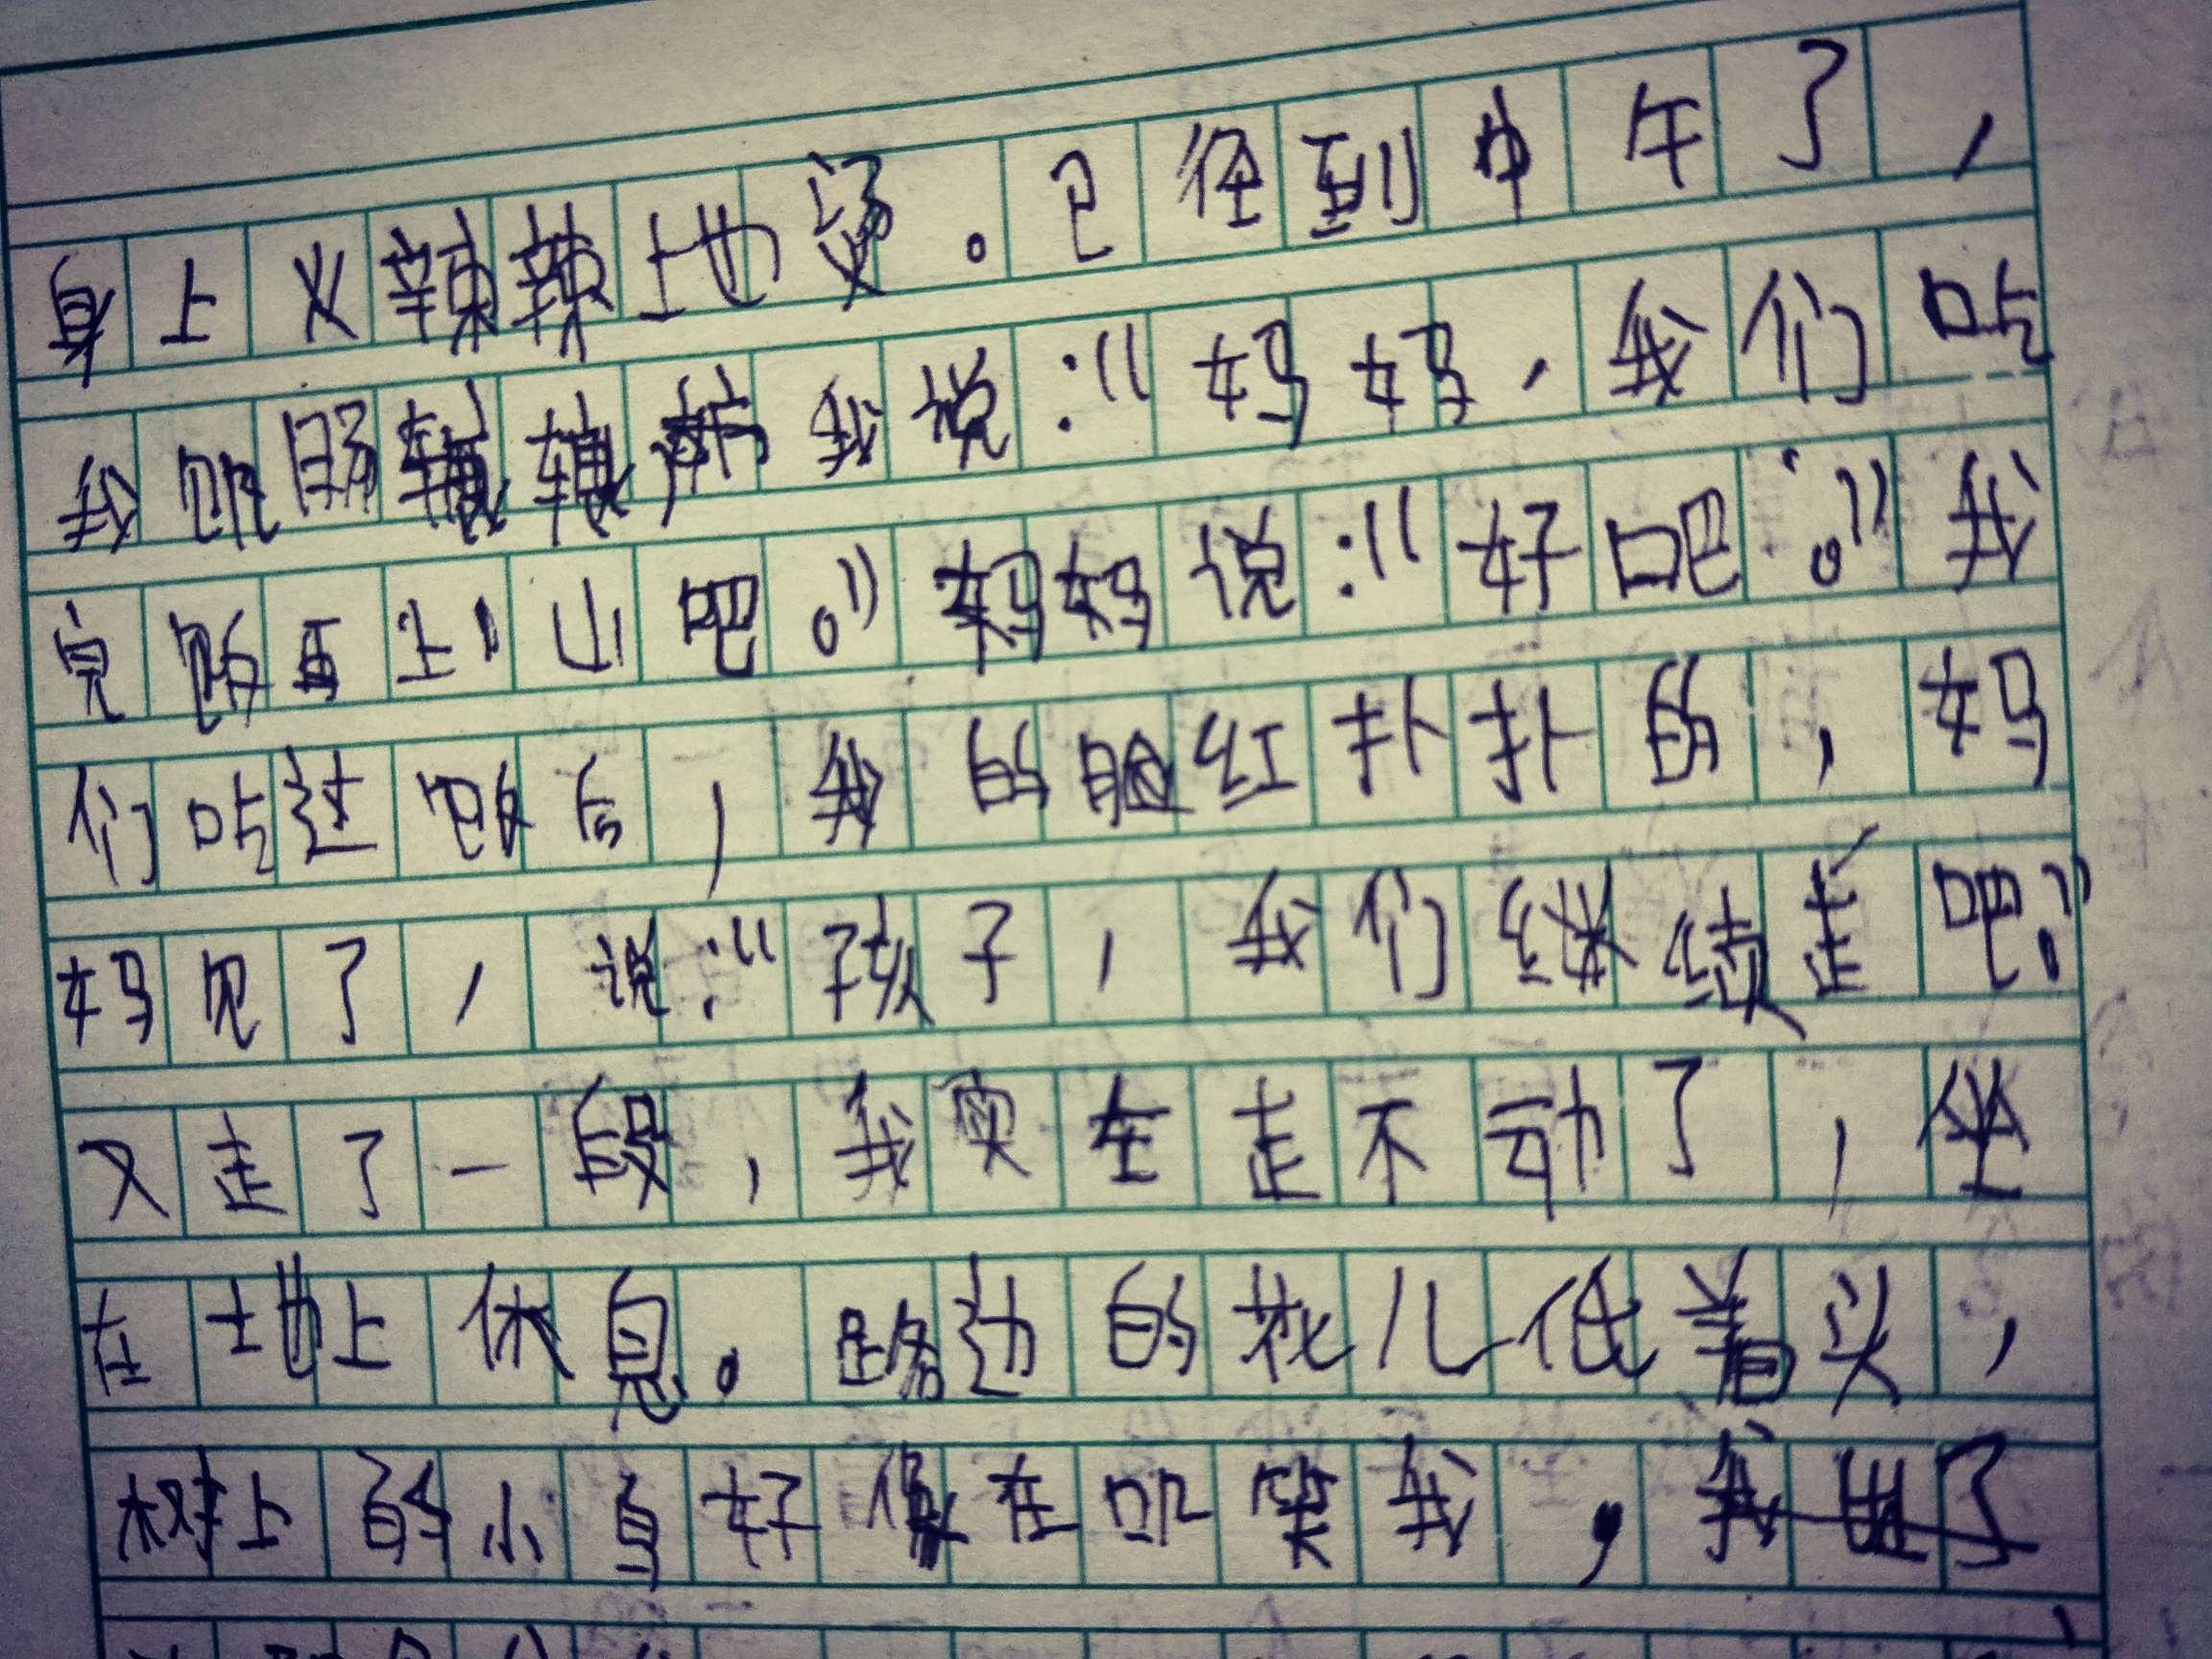 身上火辣辣地烫。已经到中午了,
我饥肠辘辘 我说:“妈妈,我们吃
完饭再上山吧。”妈妈说:“好吧。”我
们吃过饭后,我的脸红扑扑的,妈
妈见了,说:“孩子,我们继续走吧!”
又走了一段,我实在走不动了,坐
在地上休息。路边的花儿低着头,
树上的小鸟好像在叽笑我,我